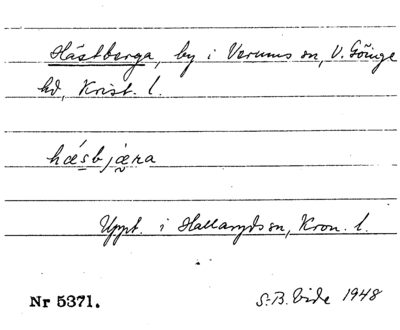 Hästberga, by i Verums sn, V. Göinge
hd, Krist. l.
hǽsbjæ̀ra
Uppt. i Hallaryds sn, Kron. l.
Nr 5371.
S.B. Vide 1948